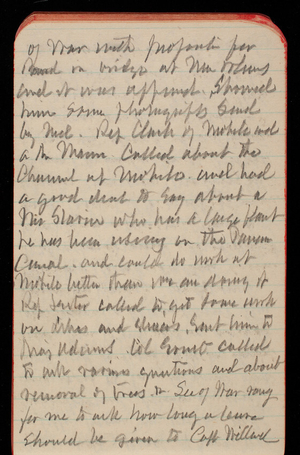 of War with proposition for
Board on bridge at New Orleans
and it was approved. Showed
him some photographs sent
by Nicl. Rep Clark of Mobile and
a Mr Mann called about the
Channel at Mobile and had
a good deal to say about a
Mr Slavin who has a large plant
he has been using on the Panama
Canal. and could do work at
Mobile better than we are doing it
Rep called to get some work
on and Sent him to
Maj Adams Col Ernst called
to ask various questions and about
removal of trees. Sec of War rang
for me to ask how long a leave
should be given to Capt Willard